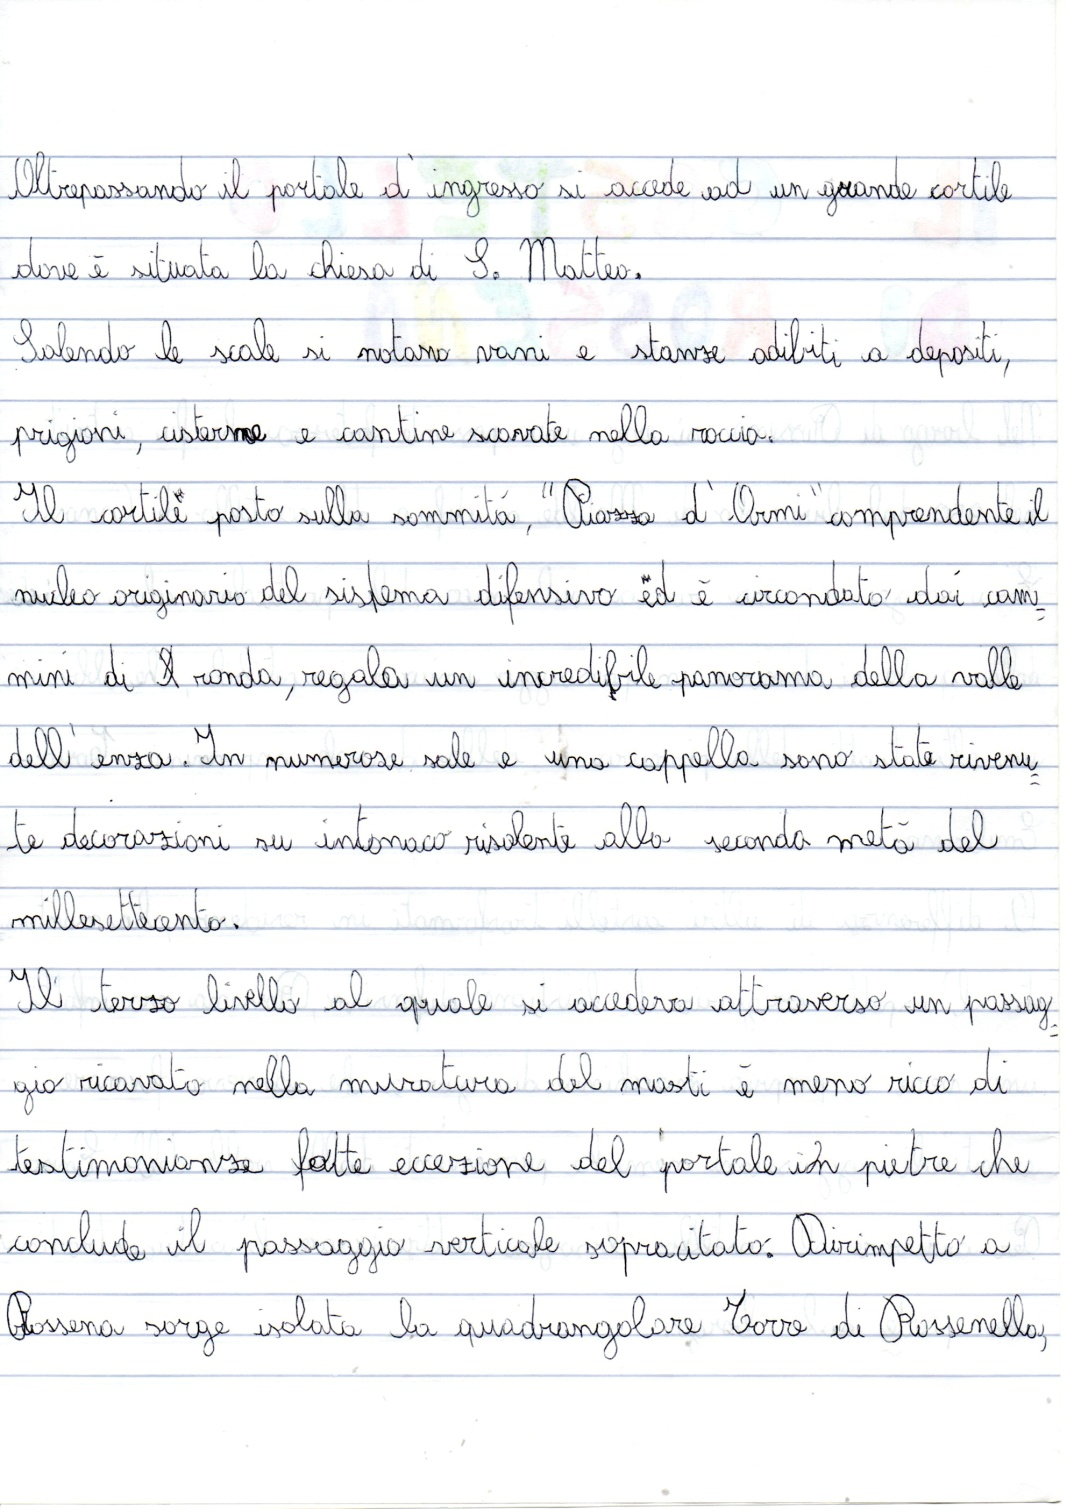 Oltrepassando il portale d'ingresso si accede ad un grande cortile
dove è situata la chiesa di S. Matteo.
Salendo le scale si notano vani e stanze adibiti a depositi,
prigioni, cisterne e cantine scavate nella roccia.
Il cortile posto sulla sommità, "Piazza d'Armi" comprendente il
nucleo originario del sistema difensivo ed è circondato dai cam=
mini di ronda, regala un incredibile panorama della valle
dell'enza. In numerose sale e una cappella sono state rivenu=
te decorazioni su intonaco risalente alla seconda metà del
millesettecento.
Il terzo livello al quale si accedeva attraverso un passag=
gio ricavato nella muratura del masti è meno ricco di
testimonianze fatte eccezione del portale in pietre che
conclude il passaggio verticale sopracitato. Dirimpetto a
Rossena sorge isolata la quadrangolare Torre di Rossenella,